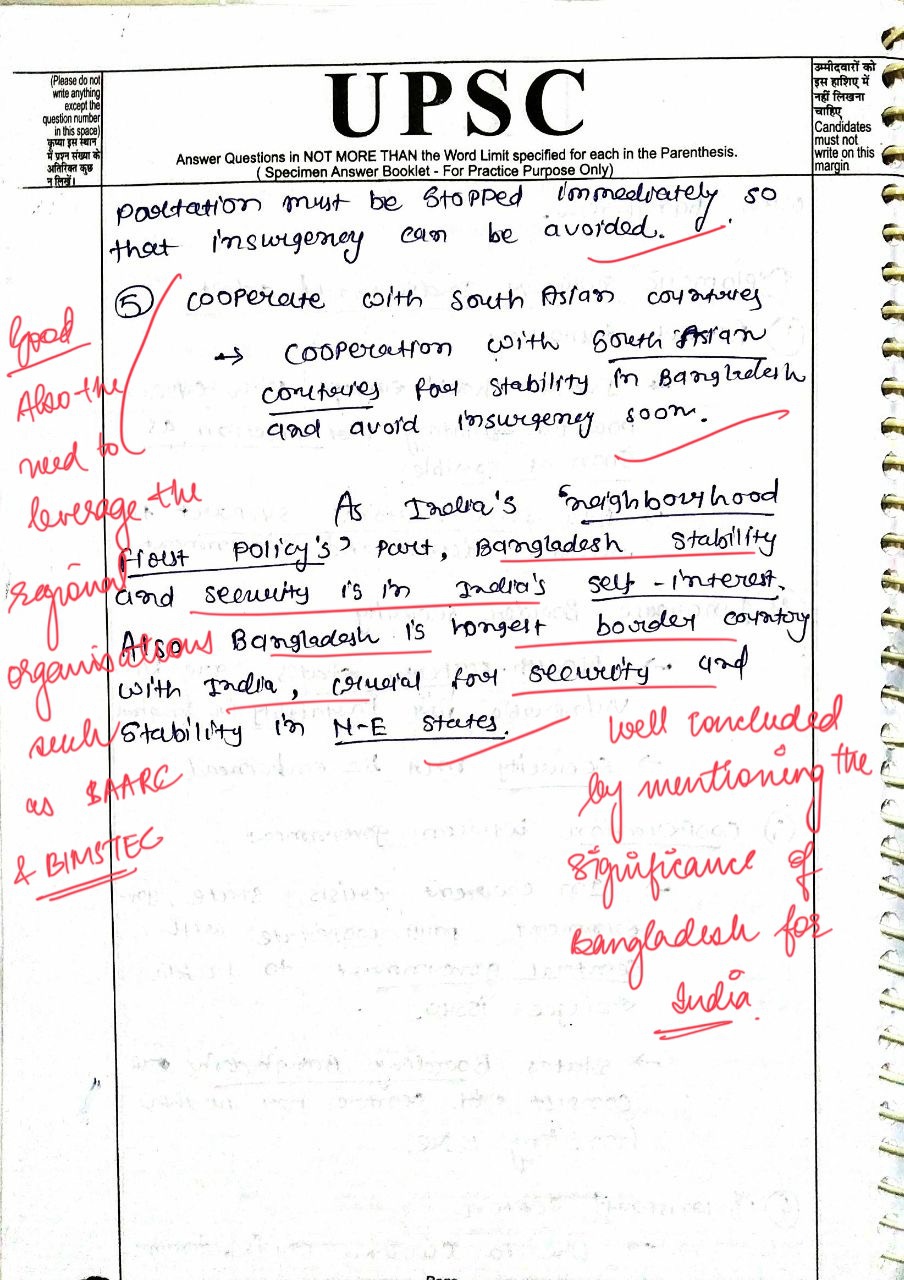 (Please do not
write anything
except the
question number
in this space)
कृप्या इस स्थान
में प्रश्न संख्या के
अतिरिक्त कुछ
न लिखें।
UPSC
Answer Questions in NOT MORE THAN the Word Limit specified for each in the Parenthesis.
( Specimen Answer Booklet - For Practice Purpose Only)
उम्मीदवारों को
इस हाशिए में
नहीं लिखना
चाहिए
Candidates
must not
write on this
margin
portation must be stopped immediately so
that insurgency can be avoided.
5 cooperate with South Asian countries
→ cooperation with South Asian
contures for stability in Bangladesh
and avoid insurgency soon.
As India's 'neighbourhood
First Policy's' part, Bangladesh stability
and security is in India's self-interest.
Also Bangladesh is longest border country
with India, crucial for security and
Stability in N-E States.
Good
Also the
need to
leverage the
regional
organisations
such
as SAARC
& BIMSTEC
Well concluded
by mentioning the
significance of
Bangladesh for
India.